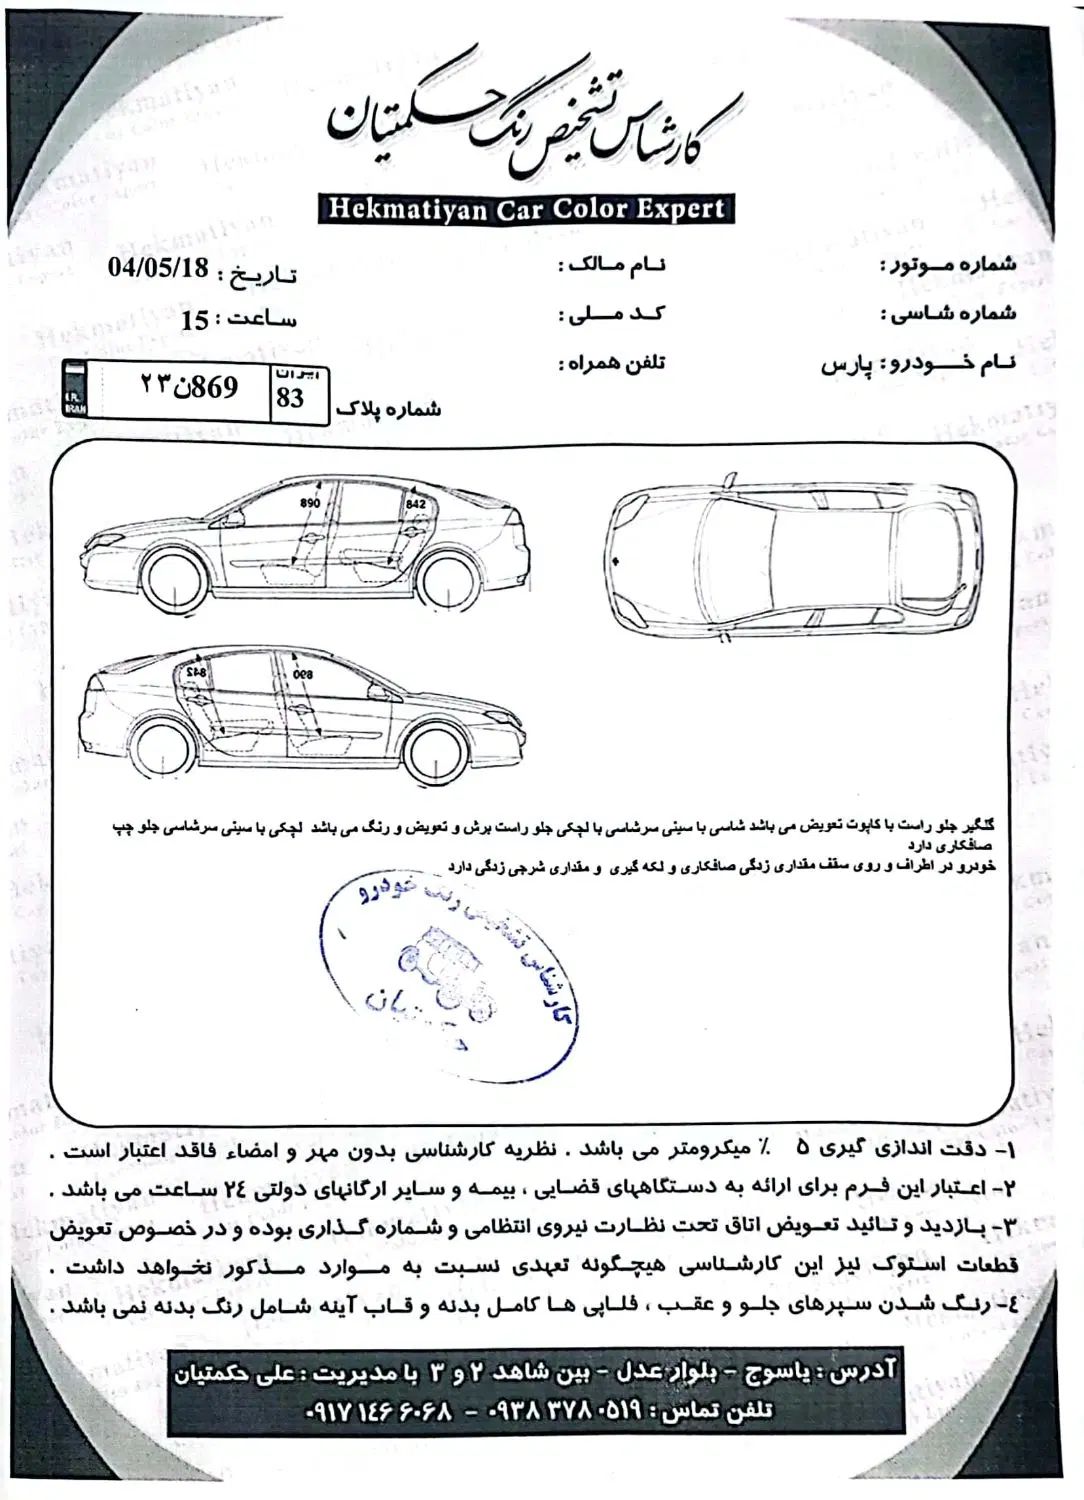 کارشناس تشخیص رنگ حکمتیان
Hekmatiyan Car Color Expert
شماره موتور :
نام مالک :
تاریخ : 04/05/18
شماره شاسی :
کد ملی :
ساعت : 15
نام خودرو : پارس
تلفن همراه :
شماره پلاک
ایران
83
869ن۲۳
I.R.
IRAN
890
842
842
890
گلگیر جلو راست با کاپوت تعویض می باشد شاسی با سینی سرشاسی با لچکی جلو راست برش و تعویض و رنگ می باشد لچکی با سینی سرشاسی جلو چپ
صافکاری دارد
خودرو در اطراف و روی سقف مقداری زدگی صافکاری و لکه گیری و مقداری شرجی زدگی دارد
کارشناس تشخیص رنگ خودرو
۱- دقت اندازی گیری ۵ ٪ میکرومتر می باشد . نظریه کارشناسی بدون مهر و امضاء فاقد اعتبار است .
۲- اعتبار این فرم برای ارائه به دستگاههای قضایی ، بیمه و سایر ارگانهای دولتی ۲۴ ساعت می باشد .
۳- بازدید و تائید تعویض اتاق تحت نظارت نیروی انتظامی و شماره گذاری بوده و در خصوص تعویض
قطعات استوک نیز این کارشناسی هیچگونه تعهدی نسبت به موارد مذکور نخواهد داشت .
۴- رنگ شدن سپرهای جلو و عقب ، فلاپی ها کامل بدنه و قاب آینه شامل رنگ بدنه نمی باشد .
آدرس : یاسوج - بلوار عدل - بین شاهد ۲ و ۳ با مدیریت : علی حکمتیان
تلفن تماس : ۰۹۳۸ ۳۷۸ ۰۵۱۹ - ۰۹۱۷ ۱۴۶ ۶۰۶۸